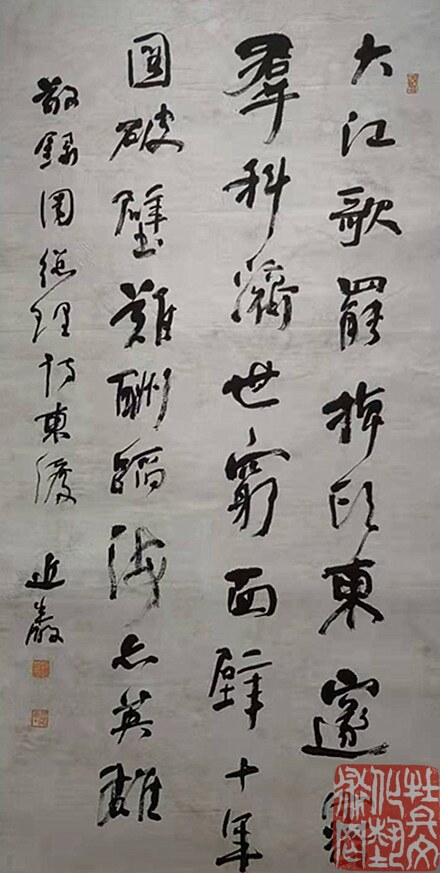 大江歌罷掉頭東邃密
羣科濟世窮面壁十年
圖破壁難酬蹈海亦英雄
敬錄周總理詩東渡 近巖